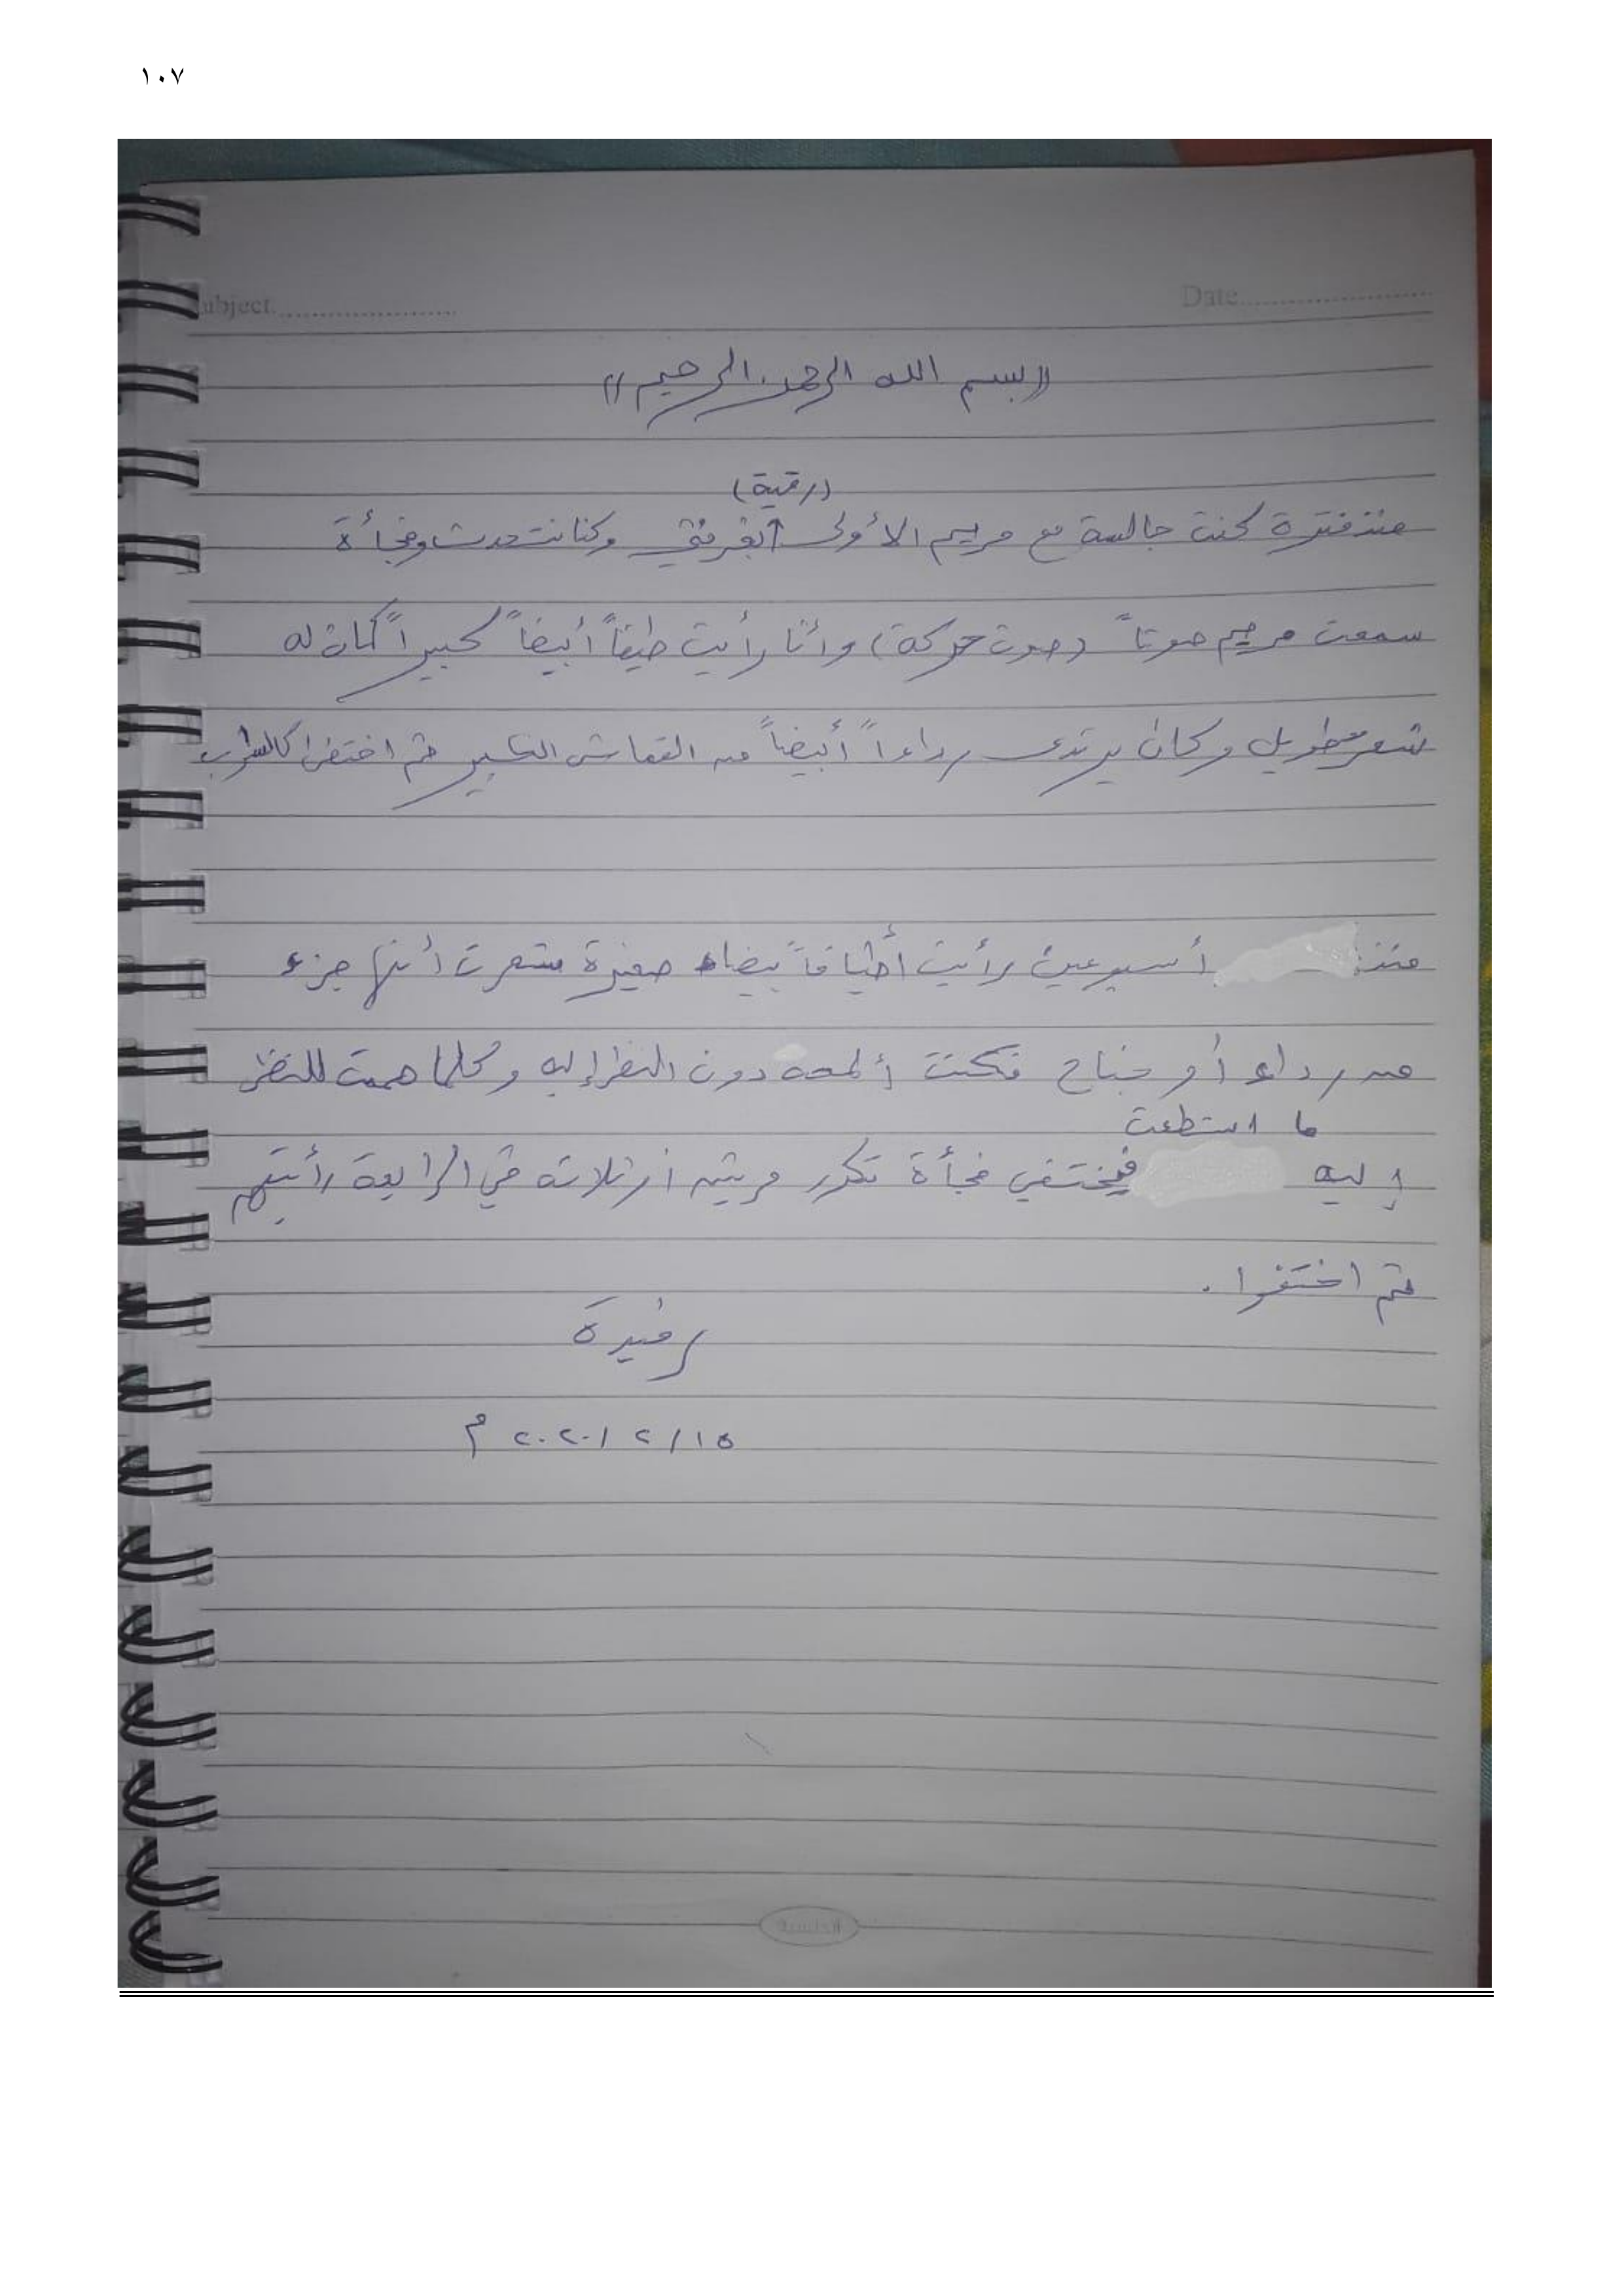 ١٠٧
Subject
Date
((بسم الله الرحمن الرحيم))
(رقية)
منذ فترة كنت جالسة مع مريم الأولى بغرفتي وكنا نتحدث وفجأة
سمعت مريم صوتاً (صوت حركة) وأنا رأيت طيفاً أبيضاً كبيراً كان له
شعر طويل وكان يرتدي رداءاً أبيضاً من القماش الكبير ثم اختفى كالسراب
منذ أسبوعين رأيت أطيافاً بيضاء صغيرة شعرت أنها جزء
من رداء أو جناح فكنت ألمحه دون النظر إليه وكلما هممت للنظر
ما استطعت
إليه فيختفي فجأة تكرر مرتين أو ثلاثة في الرابعة رأيتهم
ثم اختفوا .
رفيدة
١٥/٢/٢٠٢٠ م